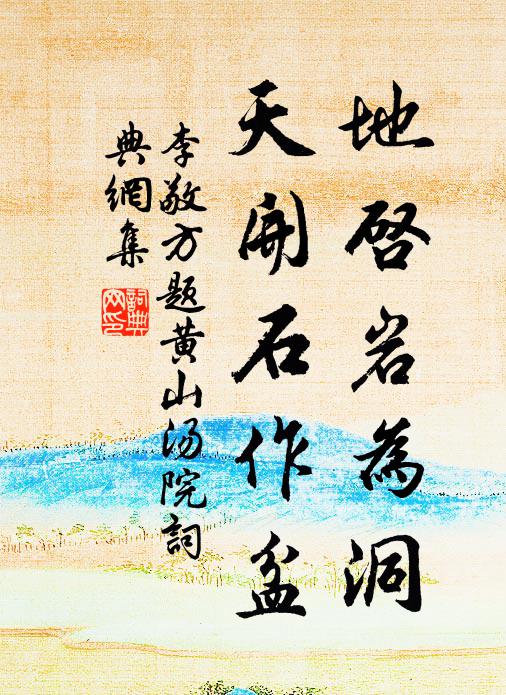 地啓岩為洞
天開石作盆
李敬方題黄山湯院詞
典網集
詞典
网印